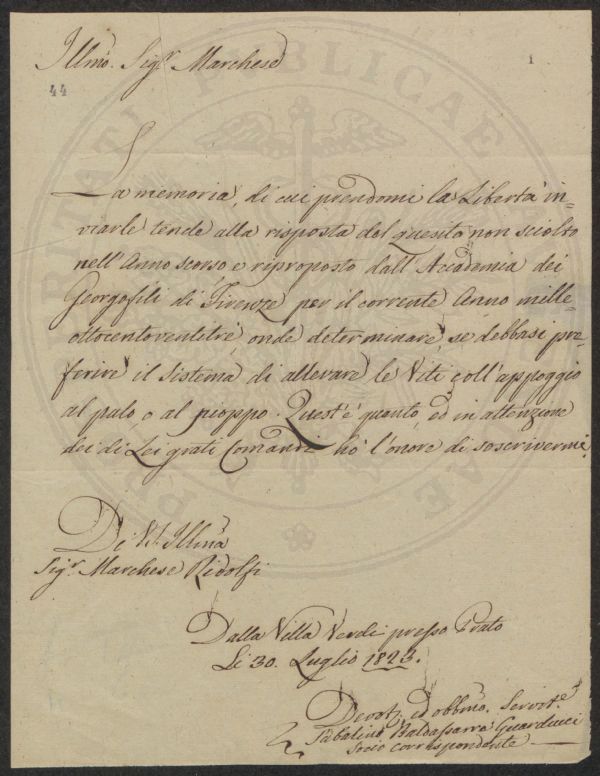 Illmo. Sigr. Marchese
1
44
La memoria, di cui prendomi la Libertà in=
viarle tende alla risposta del quesito non sciolto
nell'Anno scorso e riproposto dall'Accademia dei
Georgofili di Firenze per il corrente Anno mille=
ottocentoventitrè, onde determinare, se debbasi pre=
ferire il sistema di allevare le Viti coll'appoggio
al palo, o al pioppo. Quest'è quanto, ed in attenzione
dei di Lei grati Comandi ho l'onore di soscrivermi
Di V.S. Illma
Sigr. Marchese Ridolfi
Dalla Villa Verdi presso Prato
Li 30. Luglio 1823.
Devotj. ed obbmo. Servote.
Baldassarre Guarducci
Socio corrispondente